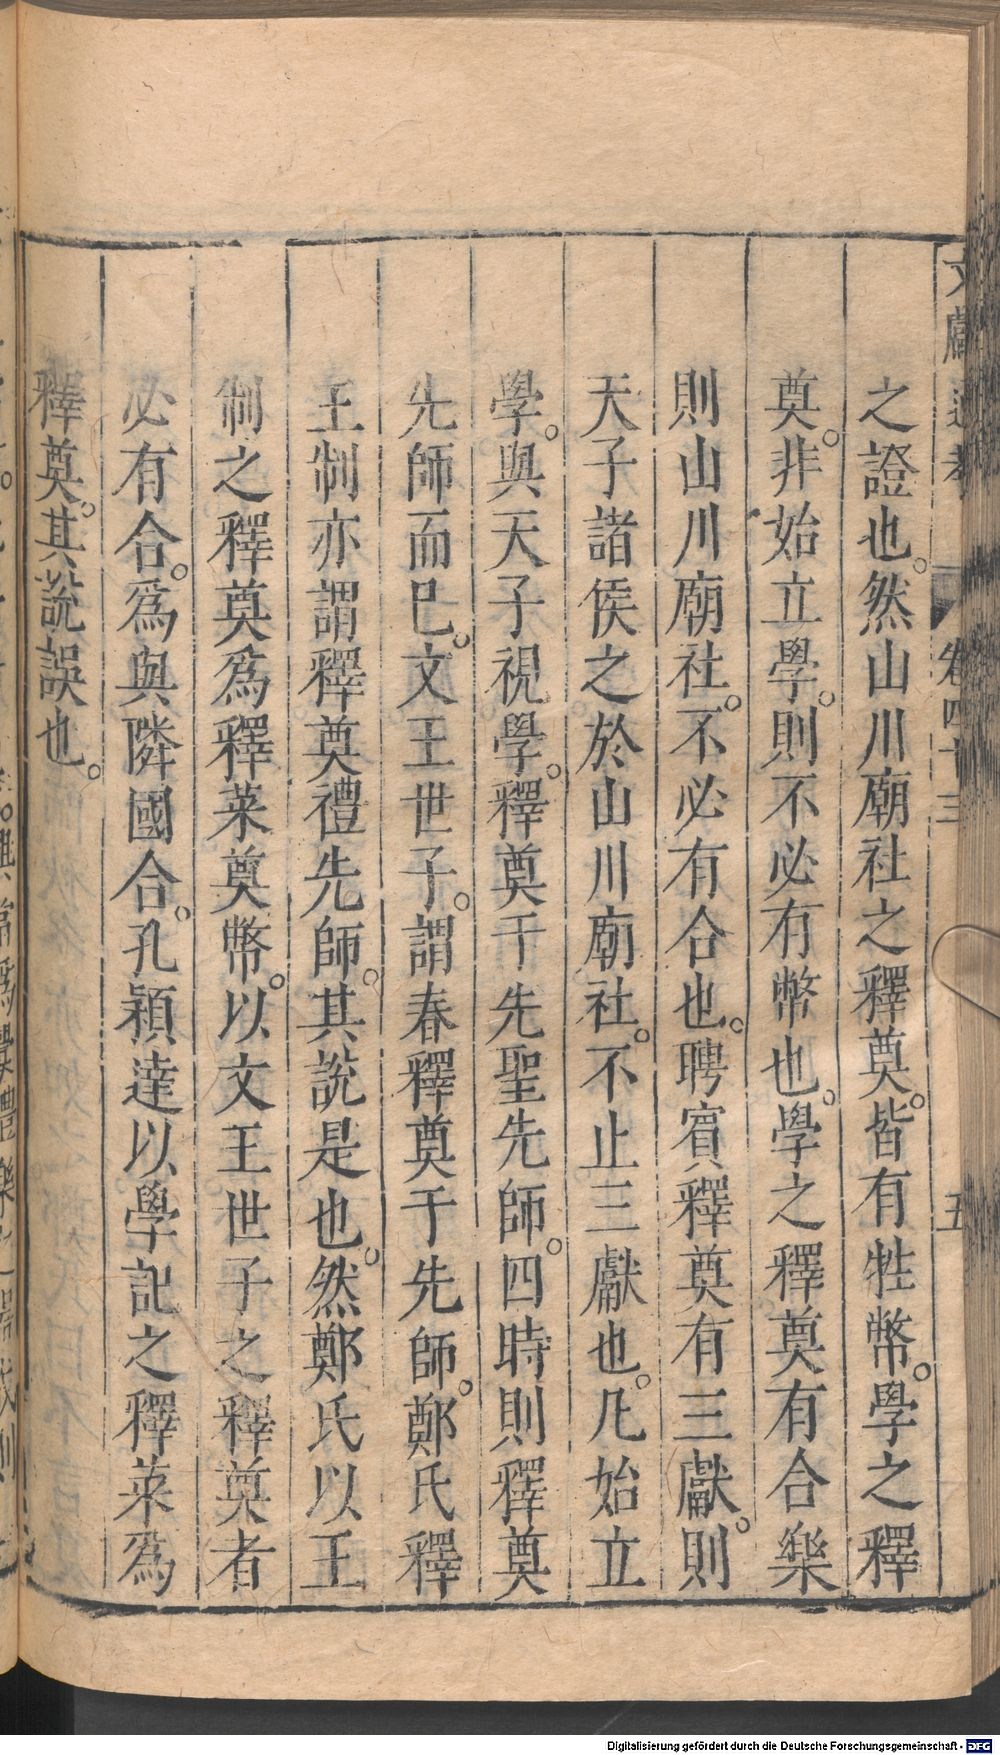 文獻通考 卷四十三 五
之證也。然山川廟社之釋奠。皆有牲幣。學之釋
奠。非始立學。則不必有幣也。學之釋奠有合樂
則山川廟社。不必有合也。聘賔釋奠有三獻。則
天子諸侯之於山川廟社。不止三獻也。凡始立
學。與天子視學。釋奠于先聖先師。四時則釋奠
先師而已。文王世子。謂春釋奠于先師。鄭氏釋
王制亦謂釋奠禮先師。其說是也。然鄭氏以王
制之釋奠爲釋菜奠幣。以文王世子之釋奠者
必有合。爲與隣國合。孔穎達以學記之釋菜爲
釋奠。其說誤也。
Digitalisierung gefördert durch die Deutsche Forschungsgemeinschaft - DFG